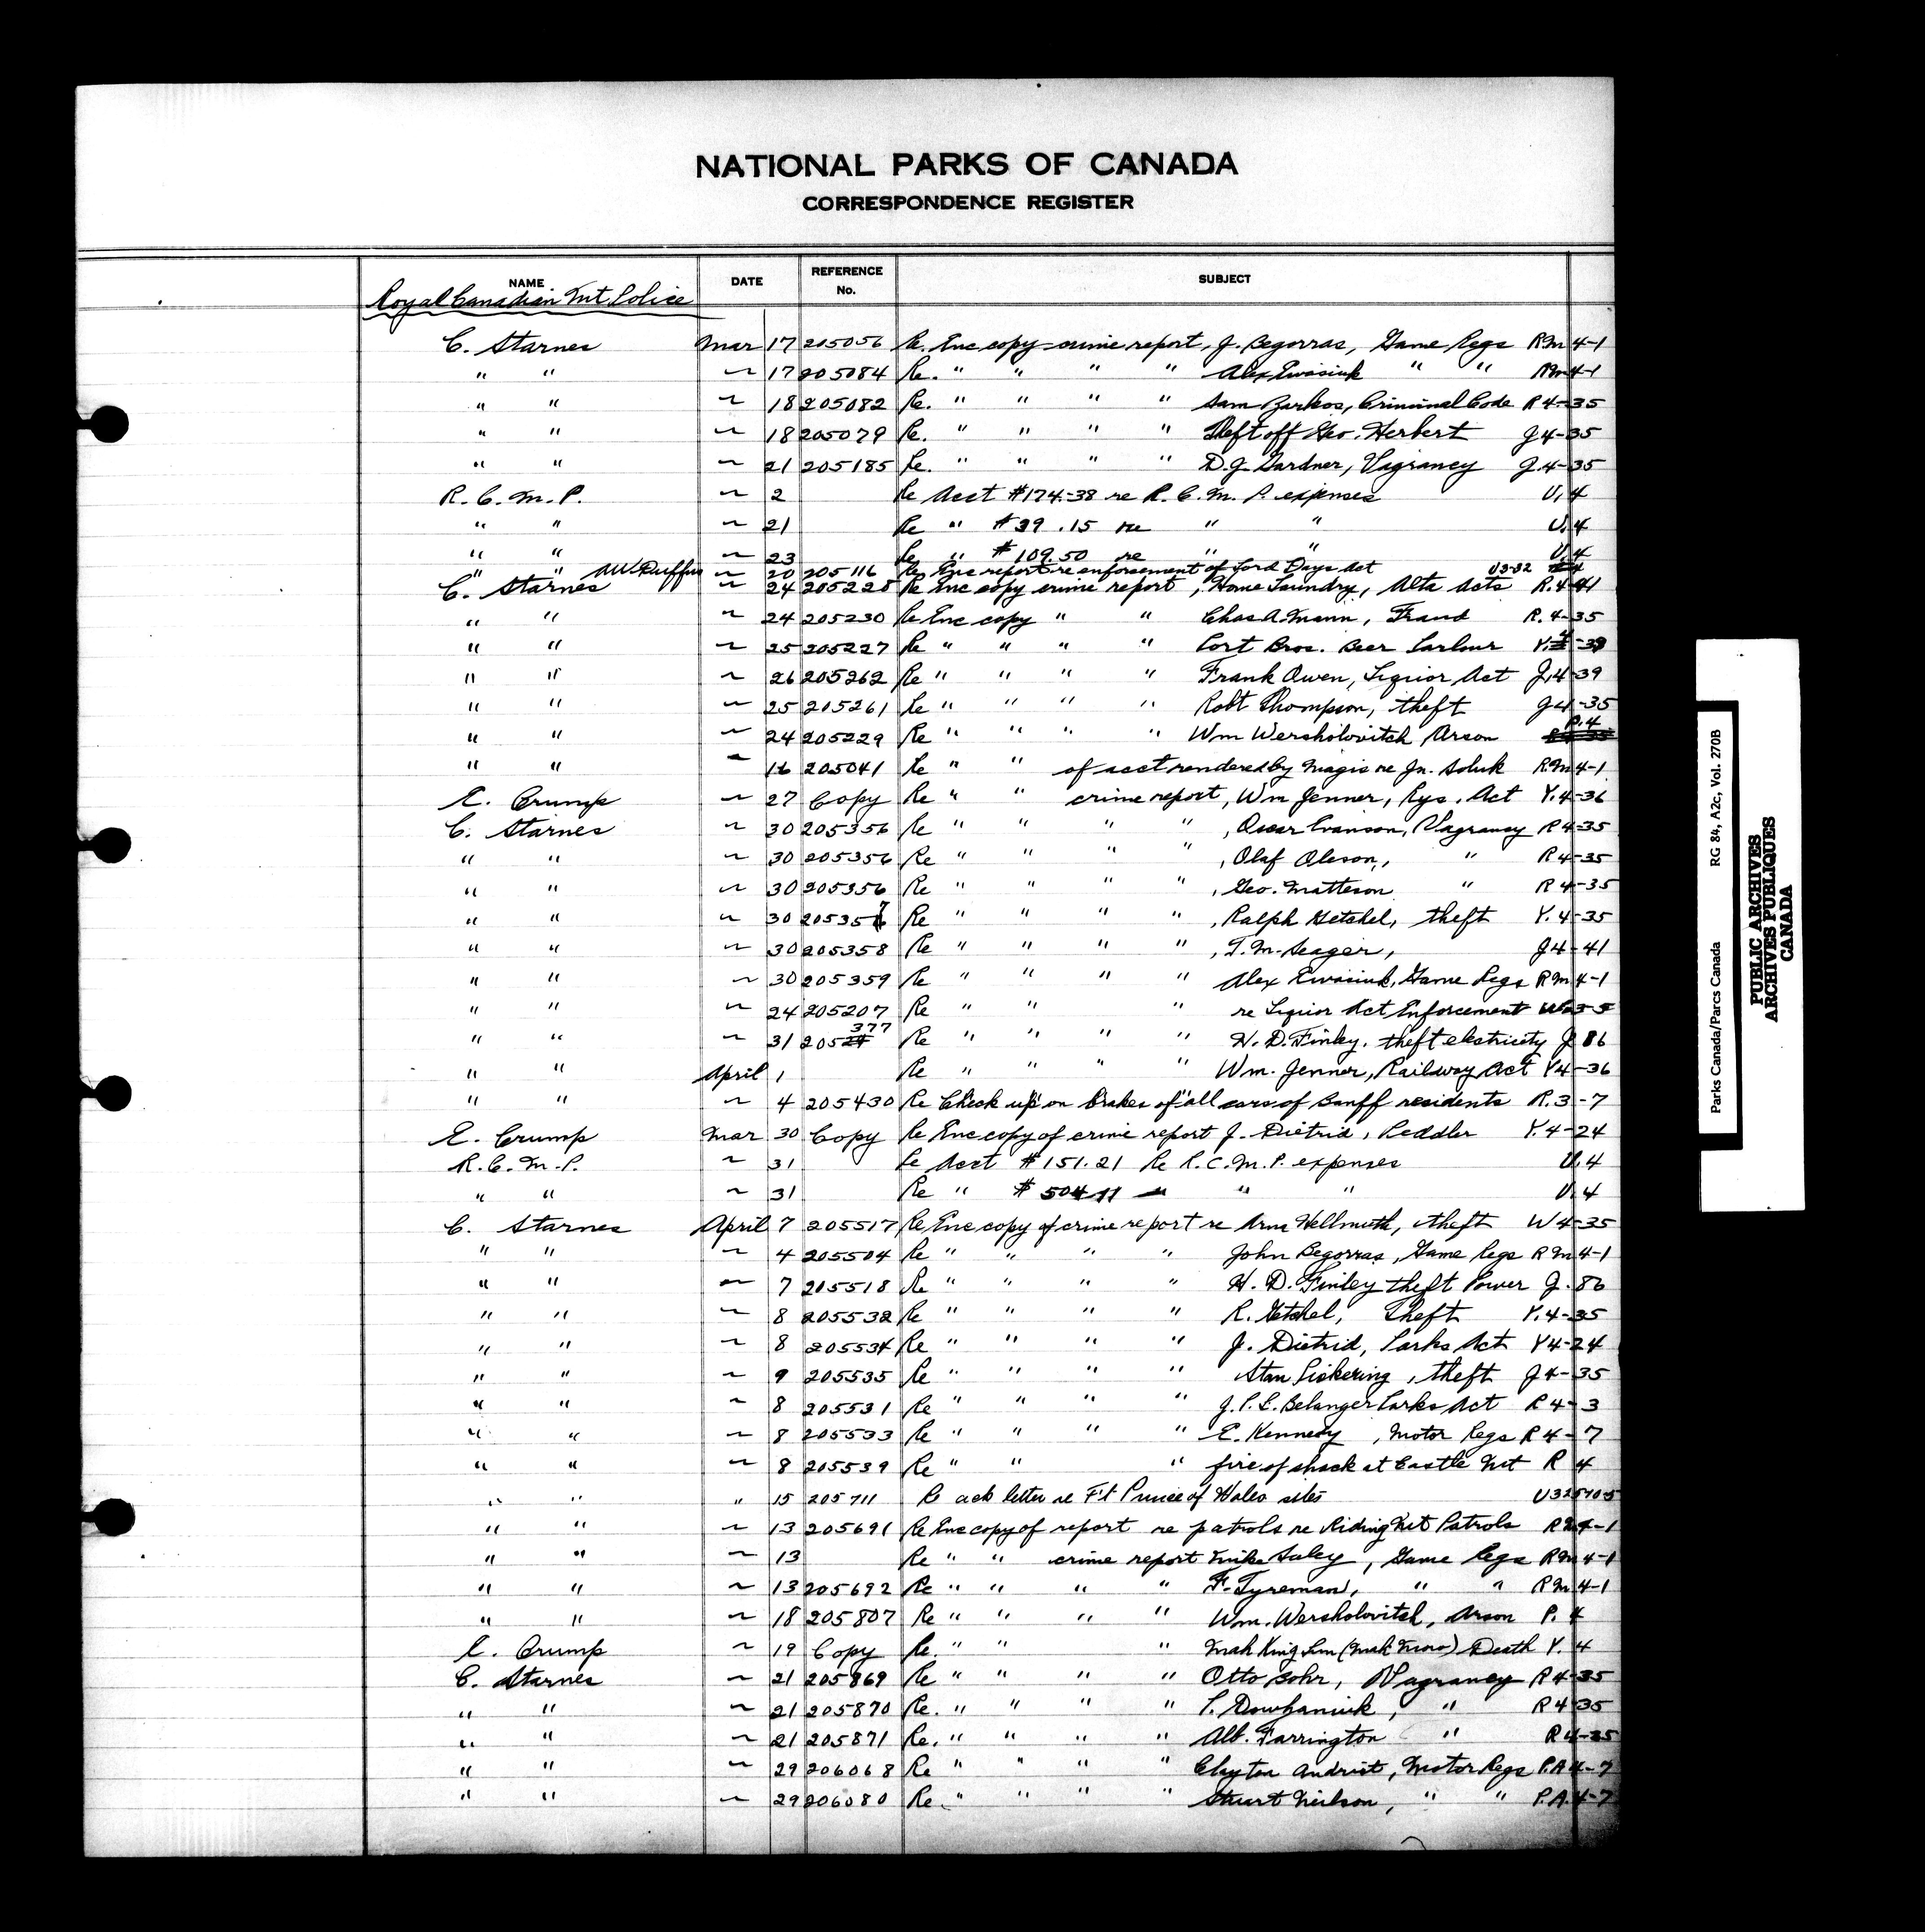 NATIONAL PARKS OF CANADA
CORRESPONDENCE REGISTER
NAME DATE REFERENCE No. SUBJECT
Royal Canadian Mt Police
C. Starnes Mar 17 205056 Re. Enc copy crime report, J. Begorras, Game Regs RM 4-1
" " ~ 17 205084 Re. " " " " Alex Ewasiuk " " RM 4-1
" " ~ 18 205082 Re. " " " " Sam Zarkos, Criminal Code R 4-35
" " ~ 18 205079 Re. " " " " Theft off Geo. Herbert J 4-35
" " ~ 21 205185 Re. " " " " D.J Gardner, Vagrancy J. 4-35
R. C. M. P. ~ 2 Re Acct #174.38 re R. C. M. P. expenses U. 4
" " ~ 21 Re " #39.15 re " " U. 4
" " ~ 23 Re " #109.50 re " " U. 4
" " A.W. Duffus ~ 20 205116 Re Enc report re enforcement of Lord Days Act U3-32
C. Starnes ~ 24 205228 Re Enc copy crime report, Home Laundry, Alta Acts R. 4-41
" " ~ 24 205230 Re Enc copy " " Chas A. Mann, Fraud R. 4-35
" " ~ 25 205227 Re " " " " Cort Bros. Beer Parlour Y. 4-39
" " ~ 26 205262 Re " " " " Frank Owen, Liquior Act J. 4-39
" " ~ 25 205261 Re " " " " Robt Thompson, theft J 4-35
" " ~ 24 205229 Re " " " " Wm Wersholovitch Arson P. 4
" " ~ 16 205041 Re " " of acct rendered by Magis re Jn. Soluk RM 4-1
E. Crump ~ 27 Copy Re " " crime report, Wm Jenner, Rys. Act Y. 4-36
C. Starnes ~ 30 205356 Re " " " " , Oscar Ivanson, Vagrancy R 4-35
" " ~ 30 205356 Re " " " " , Olaf Oleson, " R 4-35
" " ~ 30 205356 Re " " " " , Geo. Matteson " R 4-35
" " ~ 30 205357 Re " " " " , Ralph Getchel, theft Y. 4-35
" " ~ 30 205358 Re " " " " , T. M. Seager, J 4-41
" " ~ 30 205359 Re " " " " Alex Ewasiuk, Game Regs RM 4-1
" " ~ 24 205207 Re " " " re Liquior Act Enforcement
" " ~ 31 205377 Re " " " " H. D. Finley. theft electricity J 86
" " April 1 Re " " " " Wm. Jenner, Railway Act Y 4-36
" " ~ 4 205430 Re "Check up" on brakes of "all cars of Banff residents R. 3-7
E. Crump Mar 30 Copy Re Enc copy of crime report J. Dietrid, Peddler Y. 4-24
R. C. M. P. ~ 31 Re Acct #151.21 Re R. C. M. P. expenses U. 4
" " ~ 31 Re " #504.11 " " " U. 4
C. Starnes April 7 205517 Re Enc copy of crime report re Arna Hellmuth, theft W 4-35
" " ~ 4 205504 Re " " " " John Begorras, Game Regs RM 4-1
" " ~ 7 205518 Re " " " " H. D. Finley theft Power J. 86
" " ~ 8 205532 Re " " " " R. Getchel, Theft Y. 4-35
" " ~ 8 205534 Re " " " " J. Dietrid, Parks Act Y 4-24
" " ~ 9 205535 Re " " " " Stan Pickering, theft J 4-35
" " ~ 8 205531 Re " " " " J. P. E. Belanger Parks Act R 4-3
" " ~ 8 205533 Re " " " " E. Kennedy, Motor Regs R 4-7
" " ~ 8 205539 Re " " " fire of shack at Castle Mt R 4
" " " 15 205711 Re ack letter re Ft Prince of Wales sites
" " ~ 13 205691 Re Enc copy of report re patrols re Riding Mt Patrols RM 4-1
" " ~ 13 Re " " crime report Mike Saley, Game Regs RM 4-1
" " ~ 13 205692 Re " " " " F. Tyreman, " " RM 4-1
" " ~ 18 205807 Re " " " " Wm. Wersholovitch, Arson P. 4
E. Crump ~ 19 Copy Re. " " " Mah King Death Y. 4
C. Starnes ~ 21 205869 Re " " " " Otto Bohr, Vagrancy R 4-35
" " ~ 21 205870 Re. " " " " P. Dowhaniuk, " R 4-35
" " ~ 21 205871 Re. " " " " Alb. Farrington " R 4-35
" " ~ 29 206068 Re " " " " Clayton Andrist, Motor Regs P.A 4-7
" " ~ 29 206080 Re. " " " " Stuart Neilson, " " P.A. 4-7
Parks Canada/Parcs Canada RG 84, A2c, Vol. 270B
PUBLIC ARCHIVES
ARCHIVES PUBLIQUES
CANADA